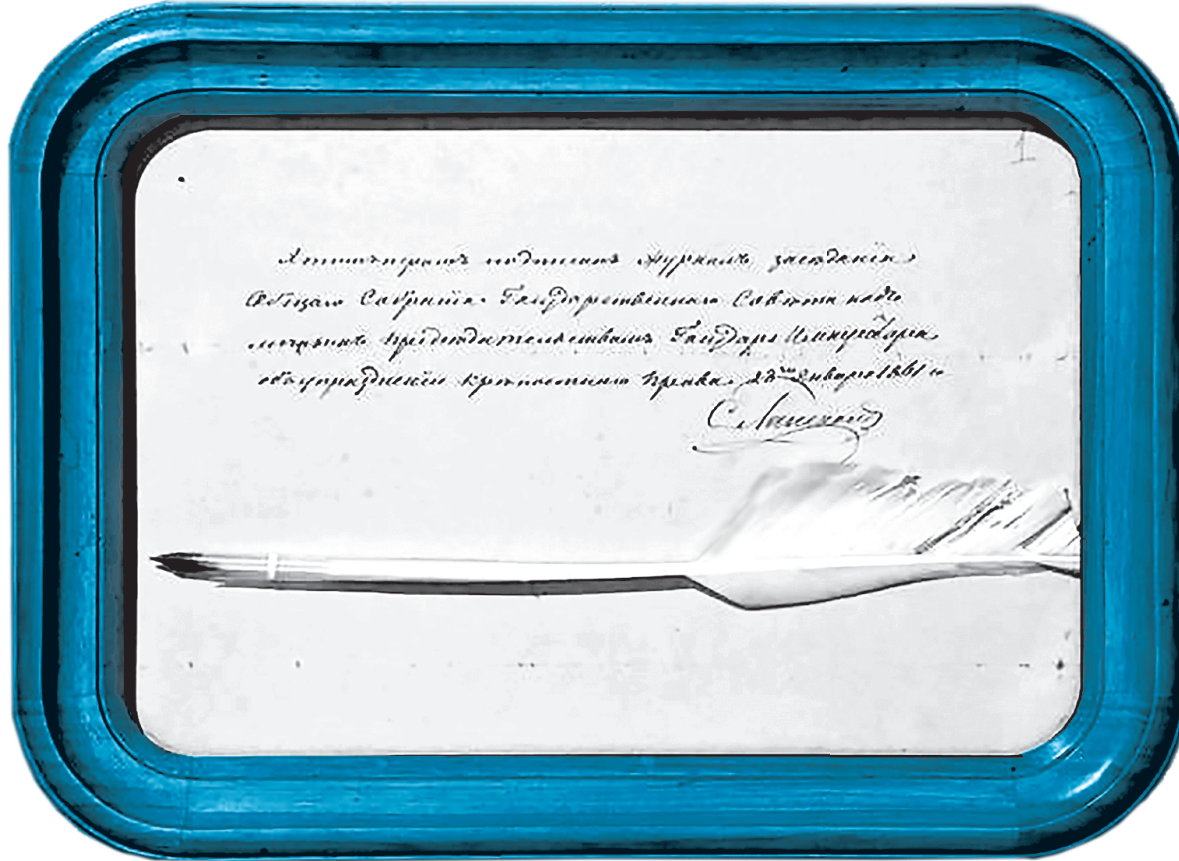 1
Этимъ перомъ подписанъ журналъ засѣданія
Общаго Собранія Государственнаго Совѣта подъ
личнымъ предсѣдательствомъ Государя Императора
объ упраздненіи крѣпостнаго права. 28го Января 1861 г
С. Ланской